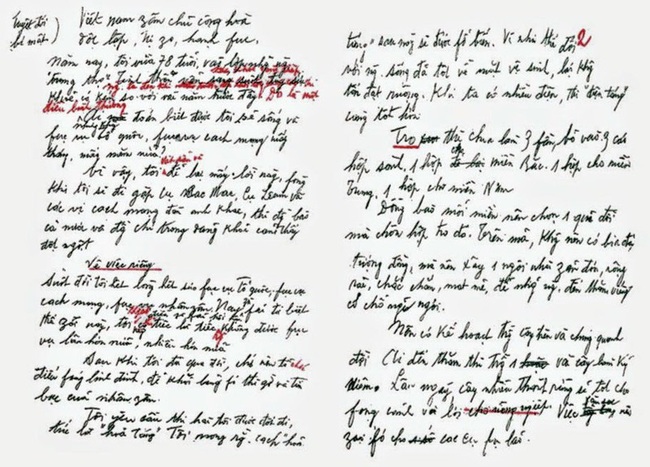 Tuyệt đối
bí mật
Việt nam zân chủ cộng hoà
độc lập, tự zo, hạnh fúc
Năm nay, tôi vừa 78 tuổi, vào lớp những người
"trung thọ".
Khỏe có kém so với vài năm trước đây. Đó là một
điều bình thường
Ai mà đoán biết được tôi sẽ sống và
fục vụ tổ quốc, fục vụ cách mạng mấy
tháng, mấy năm nữa?
Vì vậy, tôi để lại mấy lời này, fòng
khi tôi sẽ đi gặp cụ Các Mác, cụ Lênin và
các vị cách mạng đàn anh khác, thì đồng bào
cả nước và đồng chí trong đảng khỏi cảm thấy
đột ngột
Về việc riêng
Suốt đời tôi hết lòng hết sức fục vụ tổ quốc, fục vụ
cách mạng, fục vụ nhân zân. Nay zù fải từ biệt
thế zới này, tôi không có điều gì fải hối hận, chỉ tiếc là tiếc rằng không được fục
vụ lâu hơn nữa, nhiều hơn nữa
Sau khi tôi đã qua đời, chớ nên tổ chức
điếu fúng linh đình, để khỏi lãng fí thì giờ và tiền
bạc của nhân zân.
Tôi yêu cầu thi hài tôi được đốt đi,
tức là "hoả táng" Tôi mong rằng cách "hoả
2
táng" sau này sẽ được fổ biến. Vì như thế đối
với người sống đã tốt về mặt vệ sinh, lại không
tốn đất ruộng. Khi ta có nhiều điện, thì "điện táng"
càng tốt hơn
Tro thì chia làm 3 fần, bỏ vào 3 cái
hộp sành, 1 hộp cho miền Bắc. 1 hộp cho miền
Trung, 1 hộp cho miền Nam
Đồng bào mỗi miền nên chọn 1 quả đồi
mà chôn hộp tro đó. Trên mả, không nên có bia đá
tượng đồng, mà nên xây 1 ngôi nhà zản đơn, rộng
rãi, chắc chắn, mát mẻ, để những người đến thăm viếng
có chỗ nghỉ ngơi.
Nên có kế hoạch trồng cây trên và chung quanh
đồi. Ai đến thăm thì trồng 1 và cây làm kỷ
niệm. Lâu ngày, cây nhiều thành rừng sẽ tốt cho
fong cảnh và lợi cho nông nghiệp. Việc săn sóc nên
zao fó cho các cụ fụ lão.